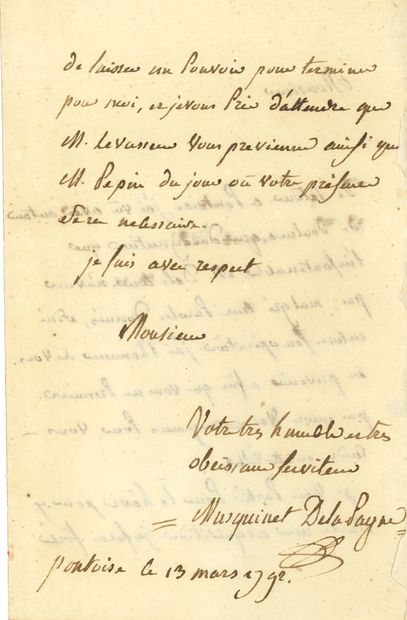 de laisser un Pouvoir pour terminer
pour moi, et je vous Prie d'attendre que
M. Levasseur Vous previenne ainsi que
M. Pepin du jour où votre présence
Sera nécéssaire.
je suis avec respect
Monsieur
Votre très humble et très
obeissant serviteur
Musquinet De la Pagne
pontoise ce 13 mars 1792.